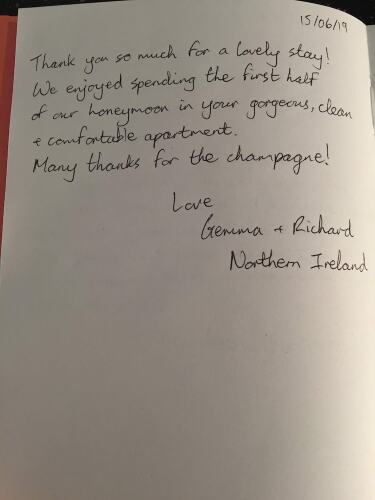 15/06/19
Thank you so much for a lovely stay!
We enjoyed spending the first half
of our honeymoon in your gorgeous, clean
+ comfortable apartment.
Many thanks for the champagne!
Love
Gemma + Richard
Northern Ireland